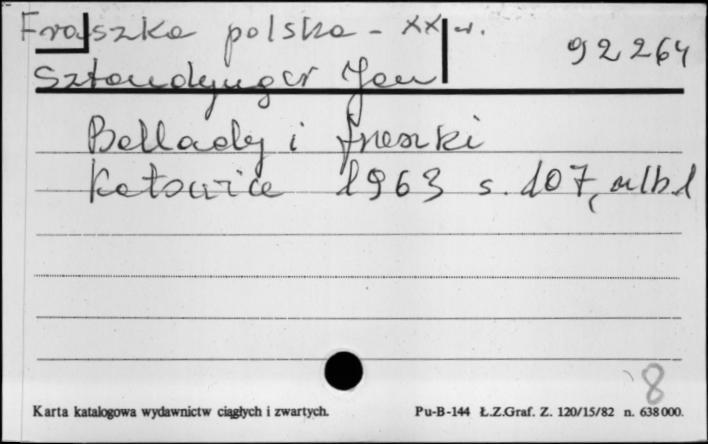 Fraszka polska - XX w.
92264
Sztaudynger Jan
Ballady i fraszki
Katowice 1963 s. 107, nlb.1
8
Karta katalogowa wydawnictw ciągłych i zwartych.
Pu-B-144 Ł.Z.Graf. Z. 120/15/82 n. 638000.